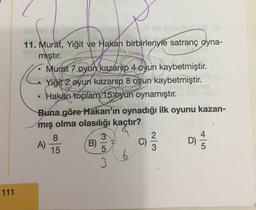 11. Murat, Yiğit ve Hakan birbirleriyle satranç oyna-
mıştır.
• Murat 7 oyun kazanıp 4 oyun kaybetmiştir.
Yiğit 2 oyun kazanıp 8 oyun kaybetmiştir.
• Hakan toplam 15 oyun oynamıştır.
Buna göre Hakan'ın oynadığı ilk oyunu kazan-
mış olma olasılığı kaçtır?
A) 8/15 B) 3/5 C) 2/3 D) 4/5
3 6
111